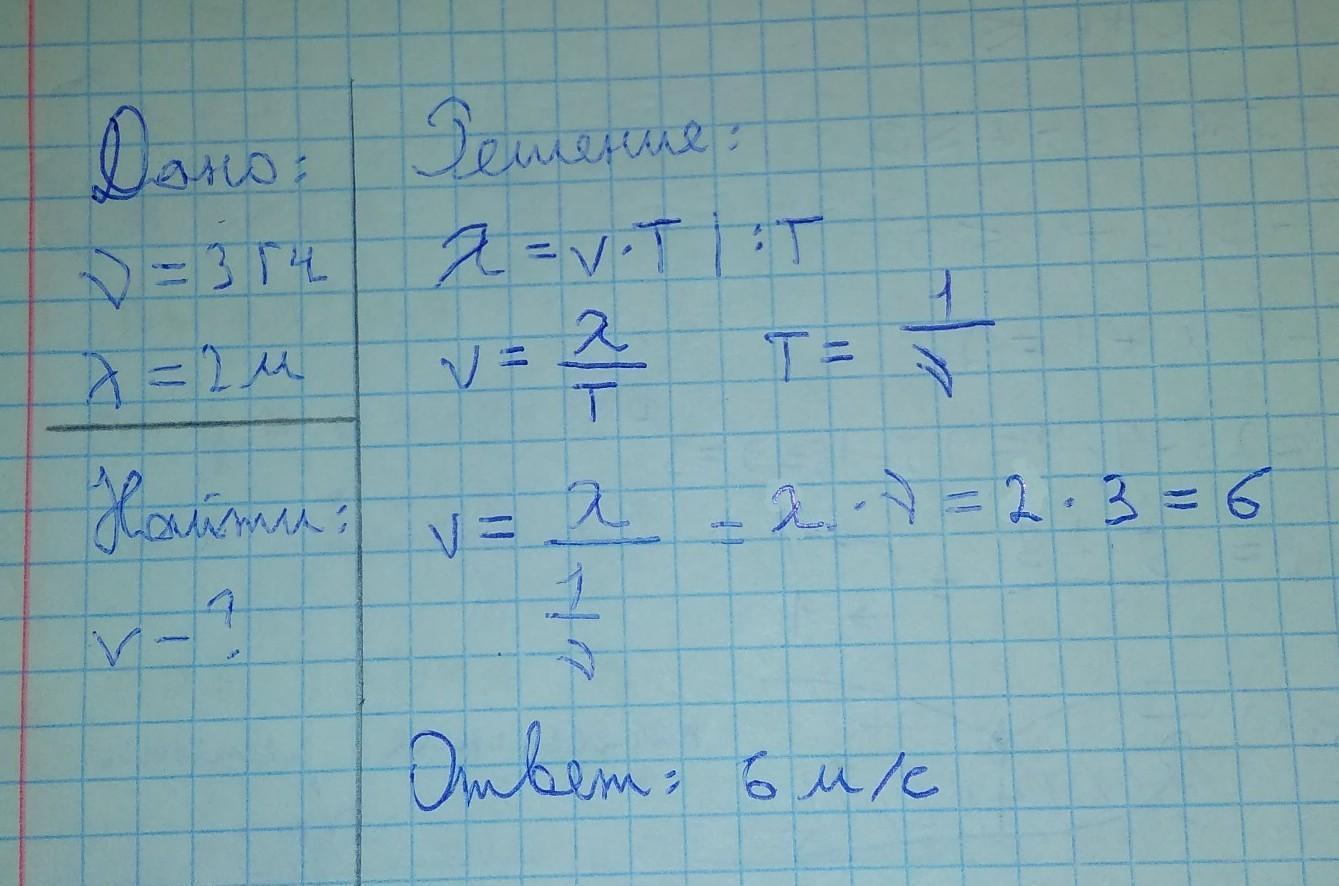 Дано:
ν = 3 Гц
λ = 2 м
Найти:
v - ?
Решение:
λ = v · T | : T
v = λ/T T = 1/ν
v = λ/(1/ν) = λ · ν = 2 · 3 = 6
Ответ: 6 м/с